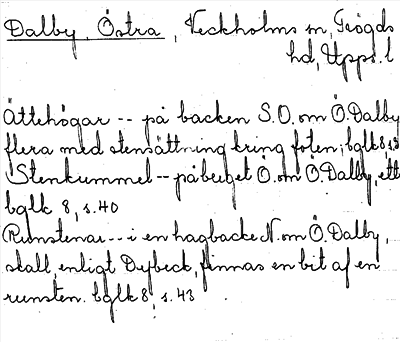 Dalby, Östra, Veckholms sn, Trögds
hd, Upps. l
Ättehögar -- på backen S.O. om Ö. Dalby
flera med stensättning kring foten; bglk 8, s
Stenkummel -- på berget Ö. om Ö. Dalby, ett
bglk 8, s. 40
Runstenar -- i en hagbacke N. om Ö. Dalby,
skall, enligt Dybeck, finnas en bit af en
runsten. bglk 8, s. 43